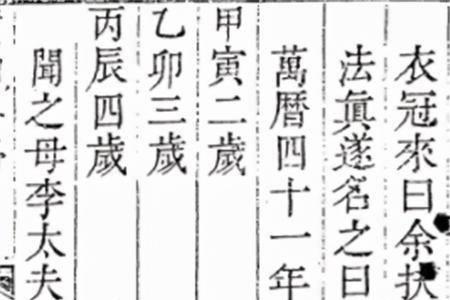 衣冠來曰余扶
法眞遂名之曰
萬曆四十一年
甲寅二歲
乙卯三歲
丙辰四歲
聞之母李太夫